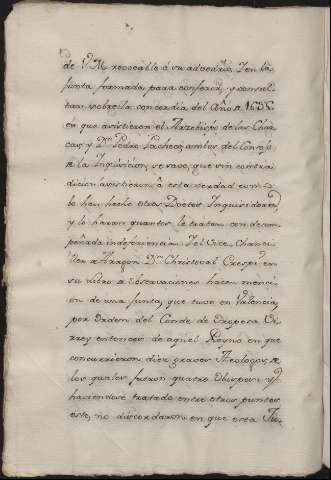 de V.M. revocable à su advedrio. I en la
Junta formada para conferir, y consul-
tar sobre la concordia del Año de 1695.
en que asistieron el Arzobispo de las Char-
cas, y Dn. Pedro Pacheco, ambos del Consejo
de la Inquisicion, se vio, que sin contra-
diccion asistieron à esta verdad como
lo hen hecho otros Doctos Inquisidores,
y lo haran quantos la traten con desem-
peñada indeferencia. I el Vice Chanci-
ller de Aragon Dn. Christoval Crespi, en
su libro de observaciones hace menci-
on de una Junta, que tuvo en Valencia
por orden del Conde de Oropesa Vi-
rrey entonces de aquel Reyno en que
concurrieron diez graves Theologos, de
los quales fueron quatro Obispos: y
haviendose tratado entre otros puntos
este, no discordaron en que esta Ju-